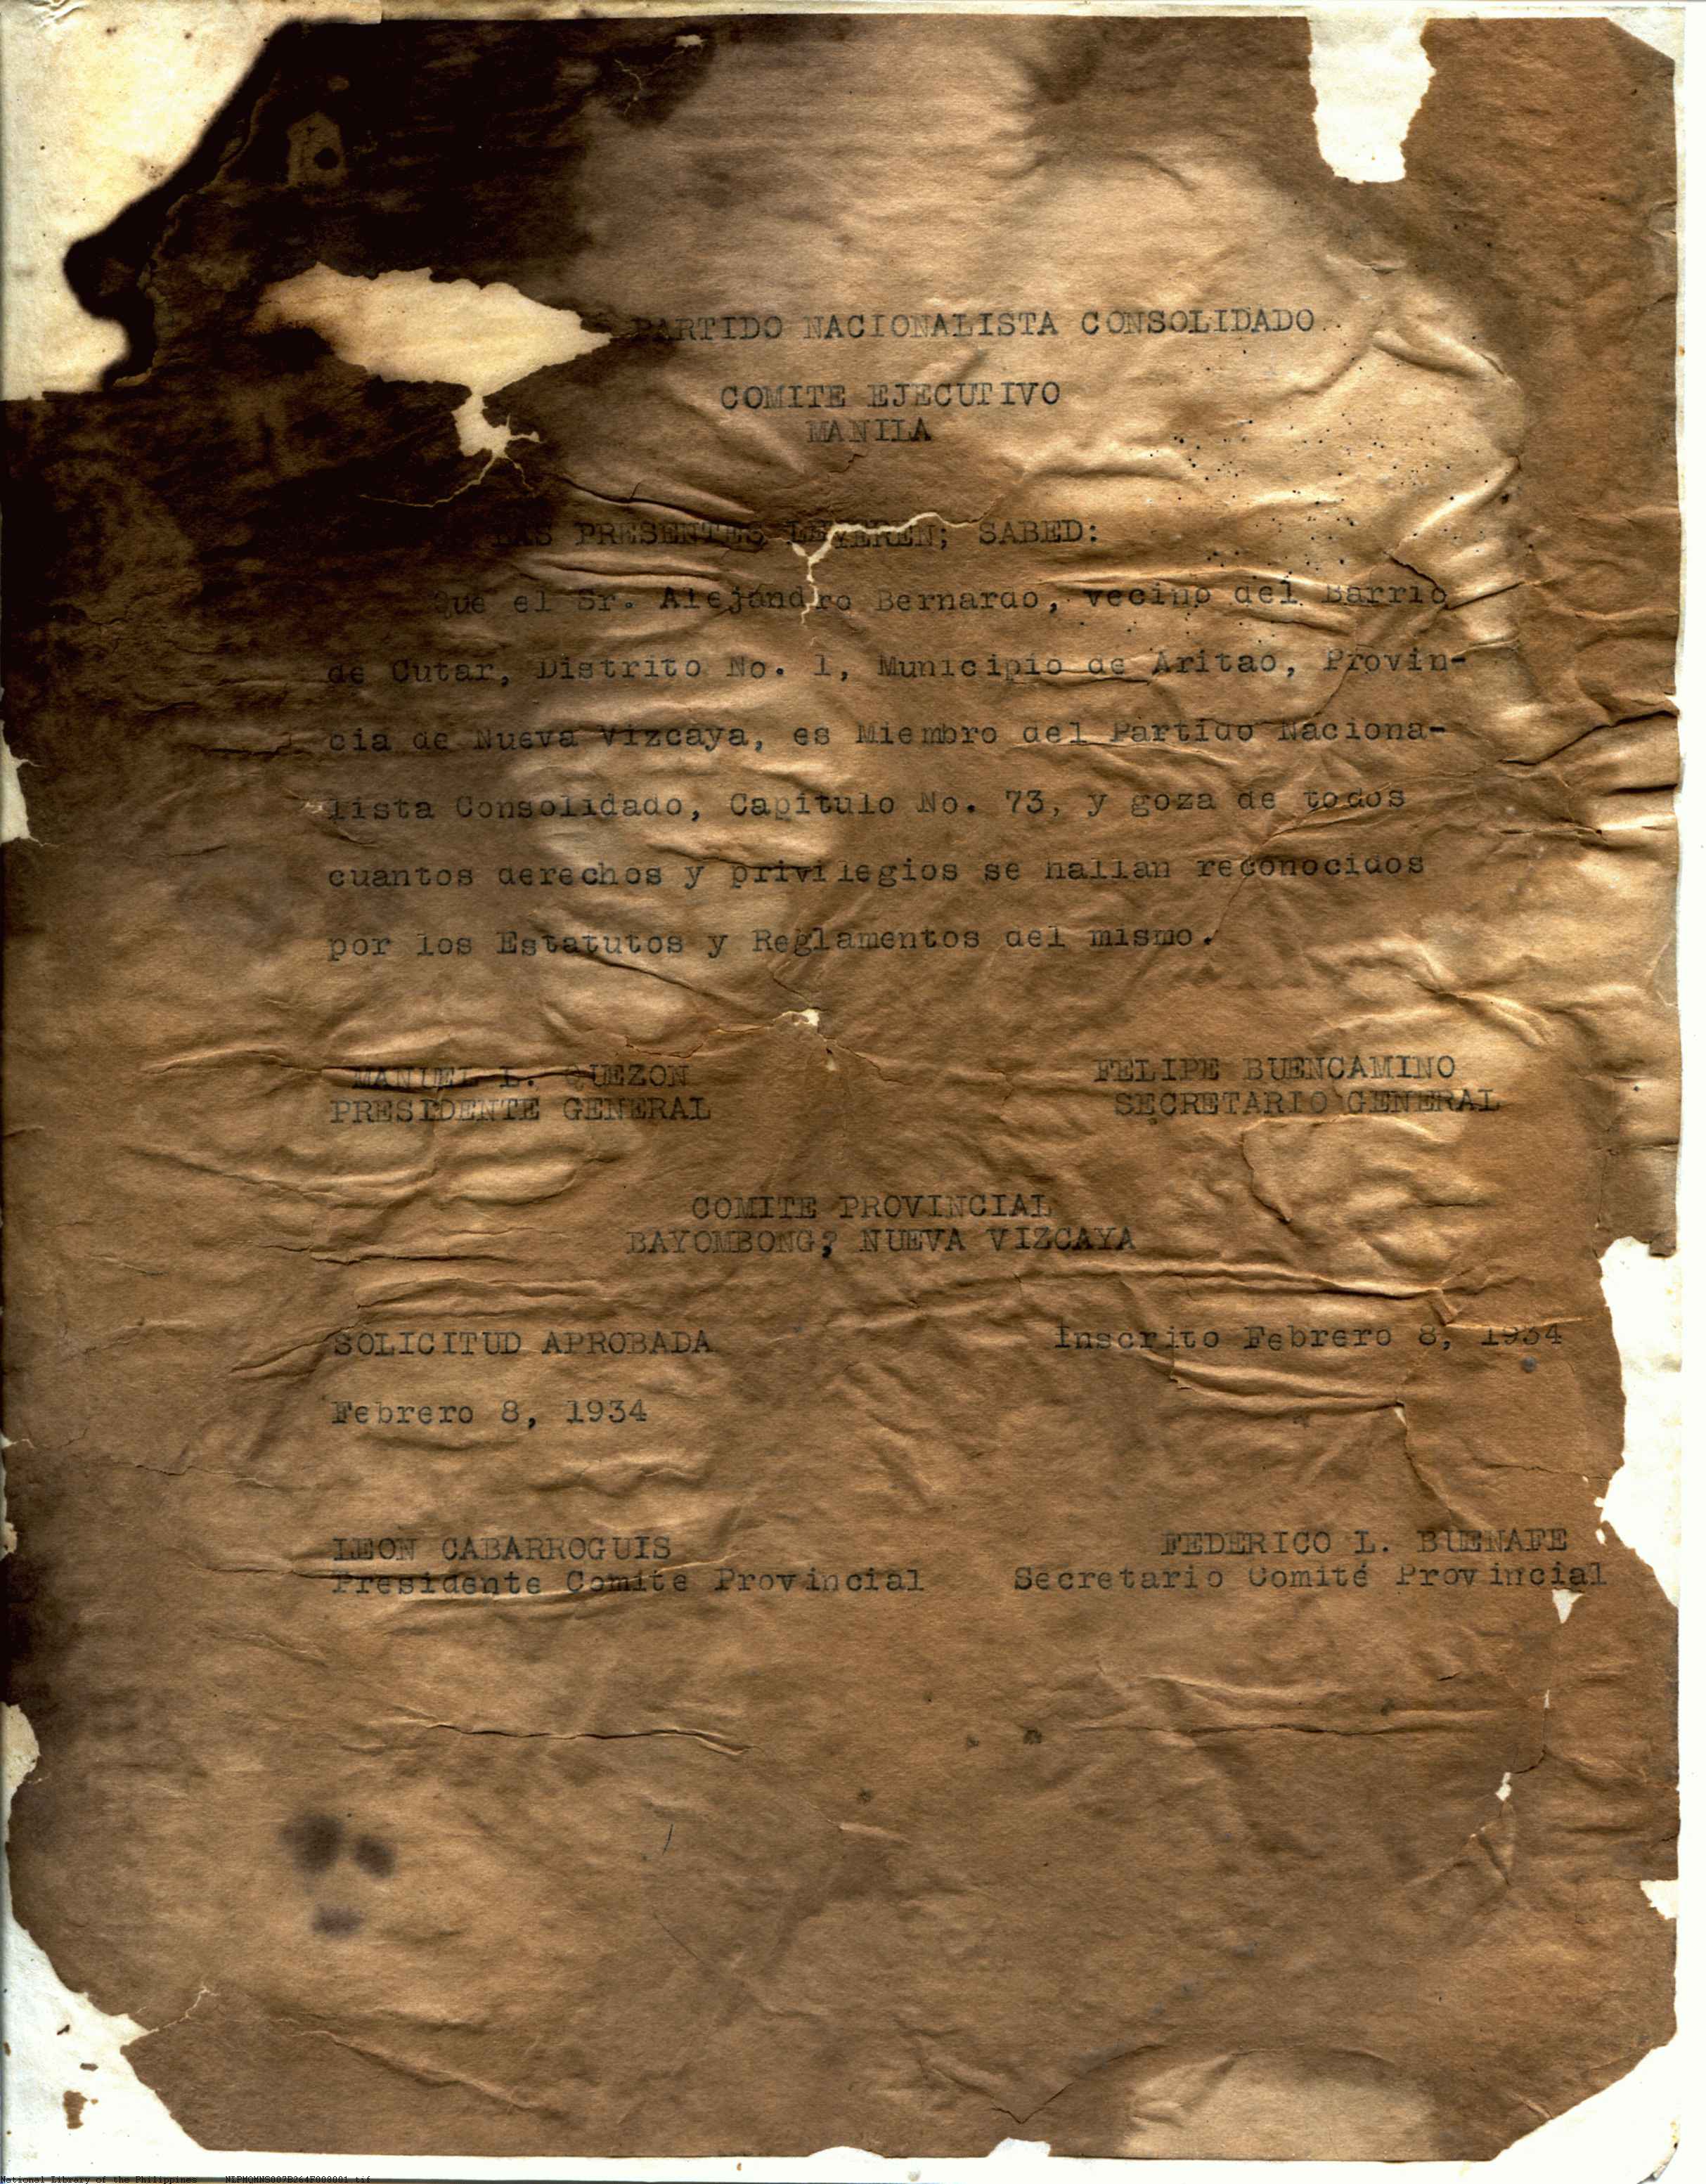 PARTIDO NACIONALISTA CONSOLIDADO
COMITE EJECUTIVO
MANILA
LAS PRESENTES LEYEREN; SABED:
Que el Sr. Alejandro Bernardo, vecino del Barrio
de Cutar, Distrito No. 1, Municipio de Aritao, Provin-
cia de Nueva Vizcaya, es Miembro del Partido Naciona-
lista Consolidado, Capitulo No. 73, y goza de todos
cuantos derechos y privilegios se hallan reconocidos
por los Estatutos y Reglamentos del mismo.
MANUEL L. QUEZON FELIPE BUENCAMINO
PRESIDENTE GENERAL SECRETARIO GENERAL
COMITE PROVINCIAL
BAYOMBONG? NUEVA VIZCAYA
SOLICITUD APROBADA Inscrito Febrero 8, 1934
Febrero 8, 1934
LEON CABARROGUIS FEDERICO L. BUENAFE
Presidente Comite Provincial Secretario Comité Provincial
National Library of the Philippines NLPMQMNS007B264F000001.tif